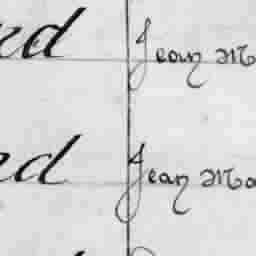 nd Jean Ma
nd Jean Ma